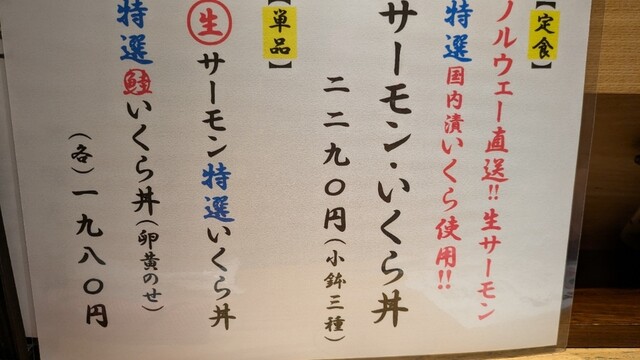 【定食】
ノルウェー直送!!生サーモン
特選国内漬いくら使用!!
サーモン・いくら丼
二二九〇円(小鉢三種)
【単品】
生サーモン特選いくら丼
特選鮭いくら丼(卵黄のせ)
(各)一九八〇円